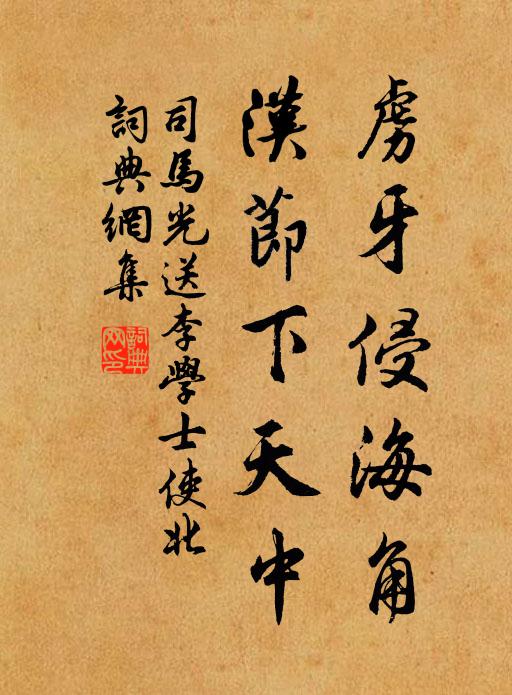 虜牙侵海角
漢節下天中
司馬光送李學士使北
詞典網集
詞典
网印